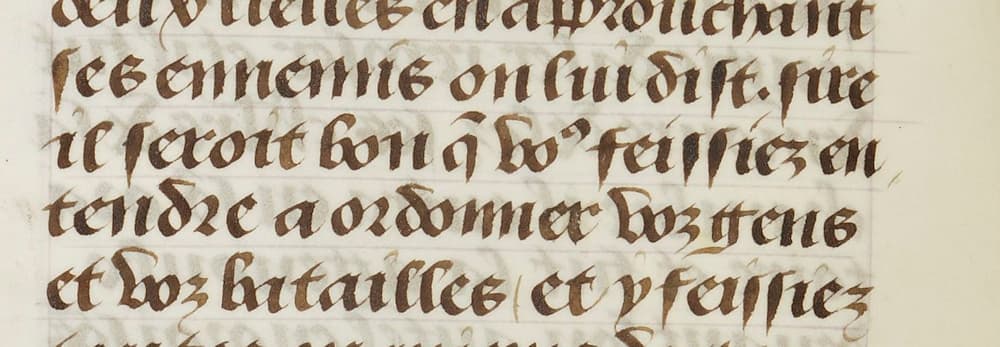 deux lieues en approuchant
ses ennemis on lui dist. sire
il seroit bon q̄ voꝰ feissiez en
tendre a ordonner voz gens
et voz batailles / et y feissiez